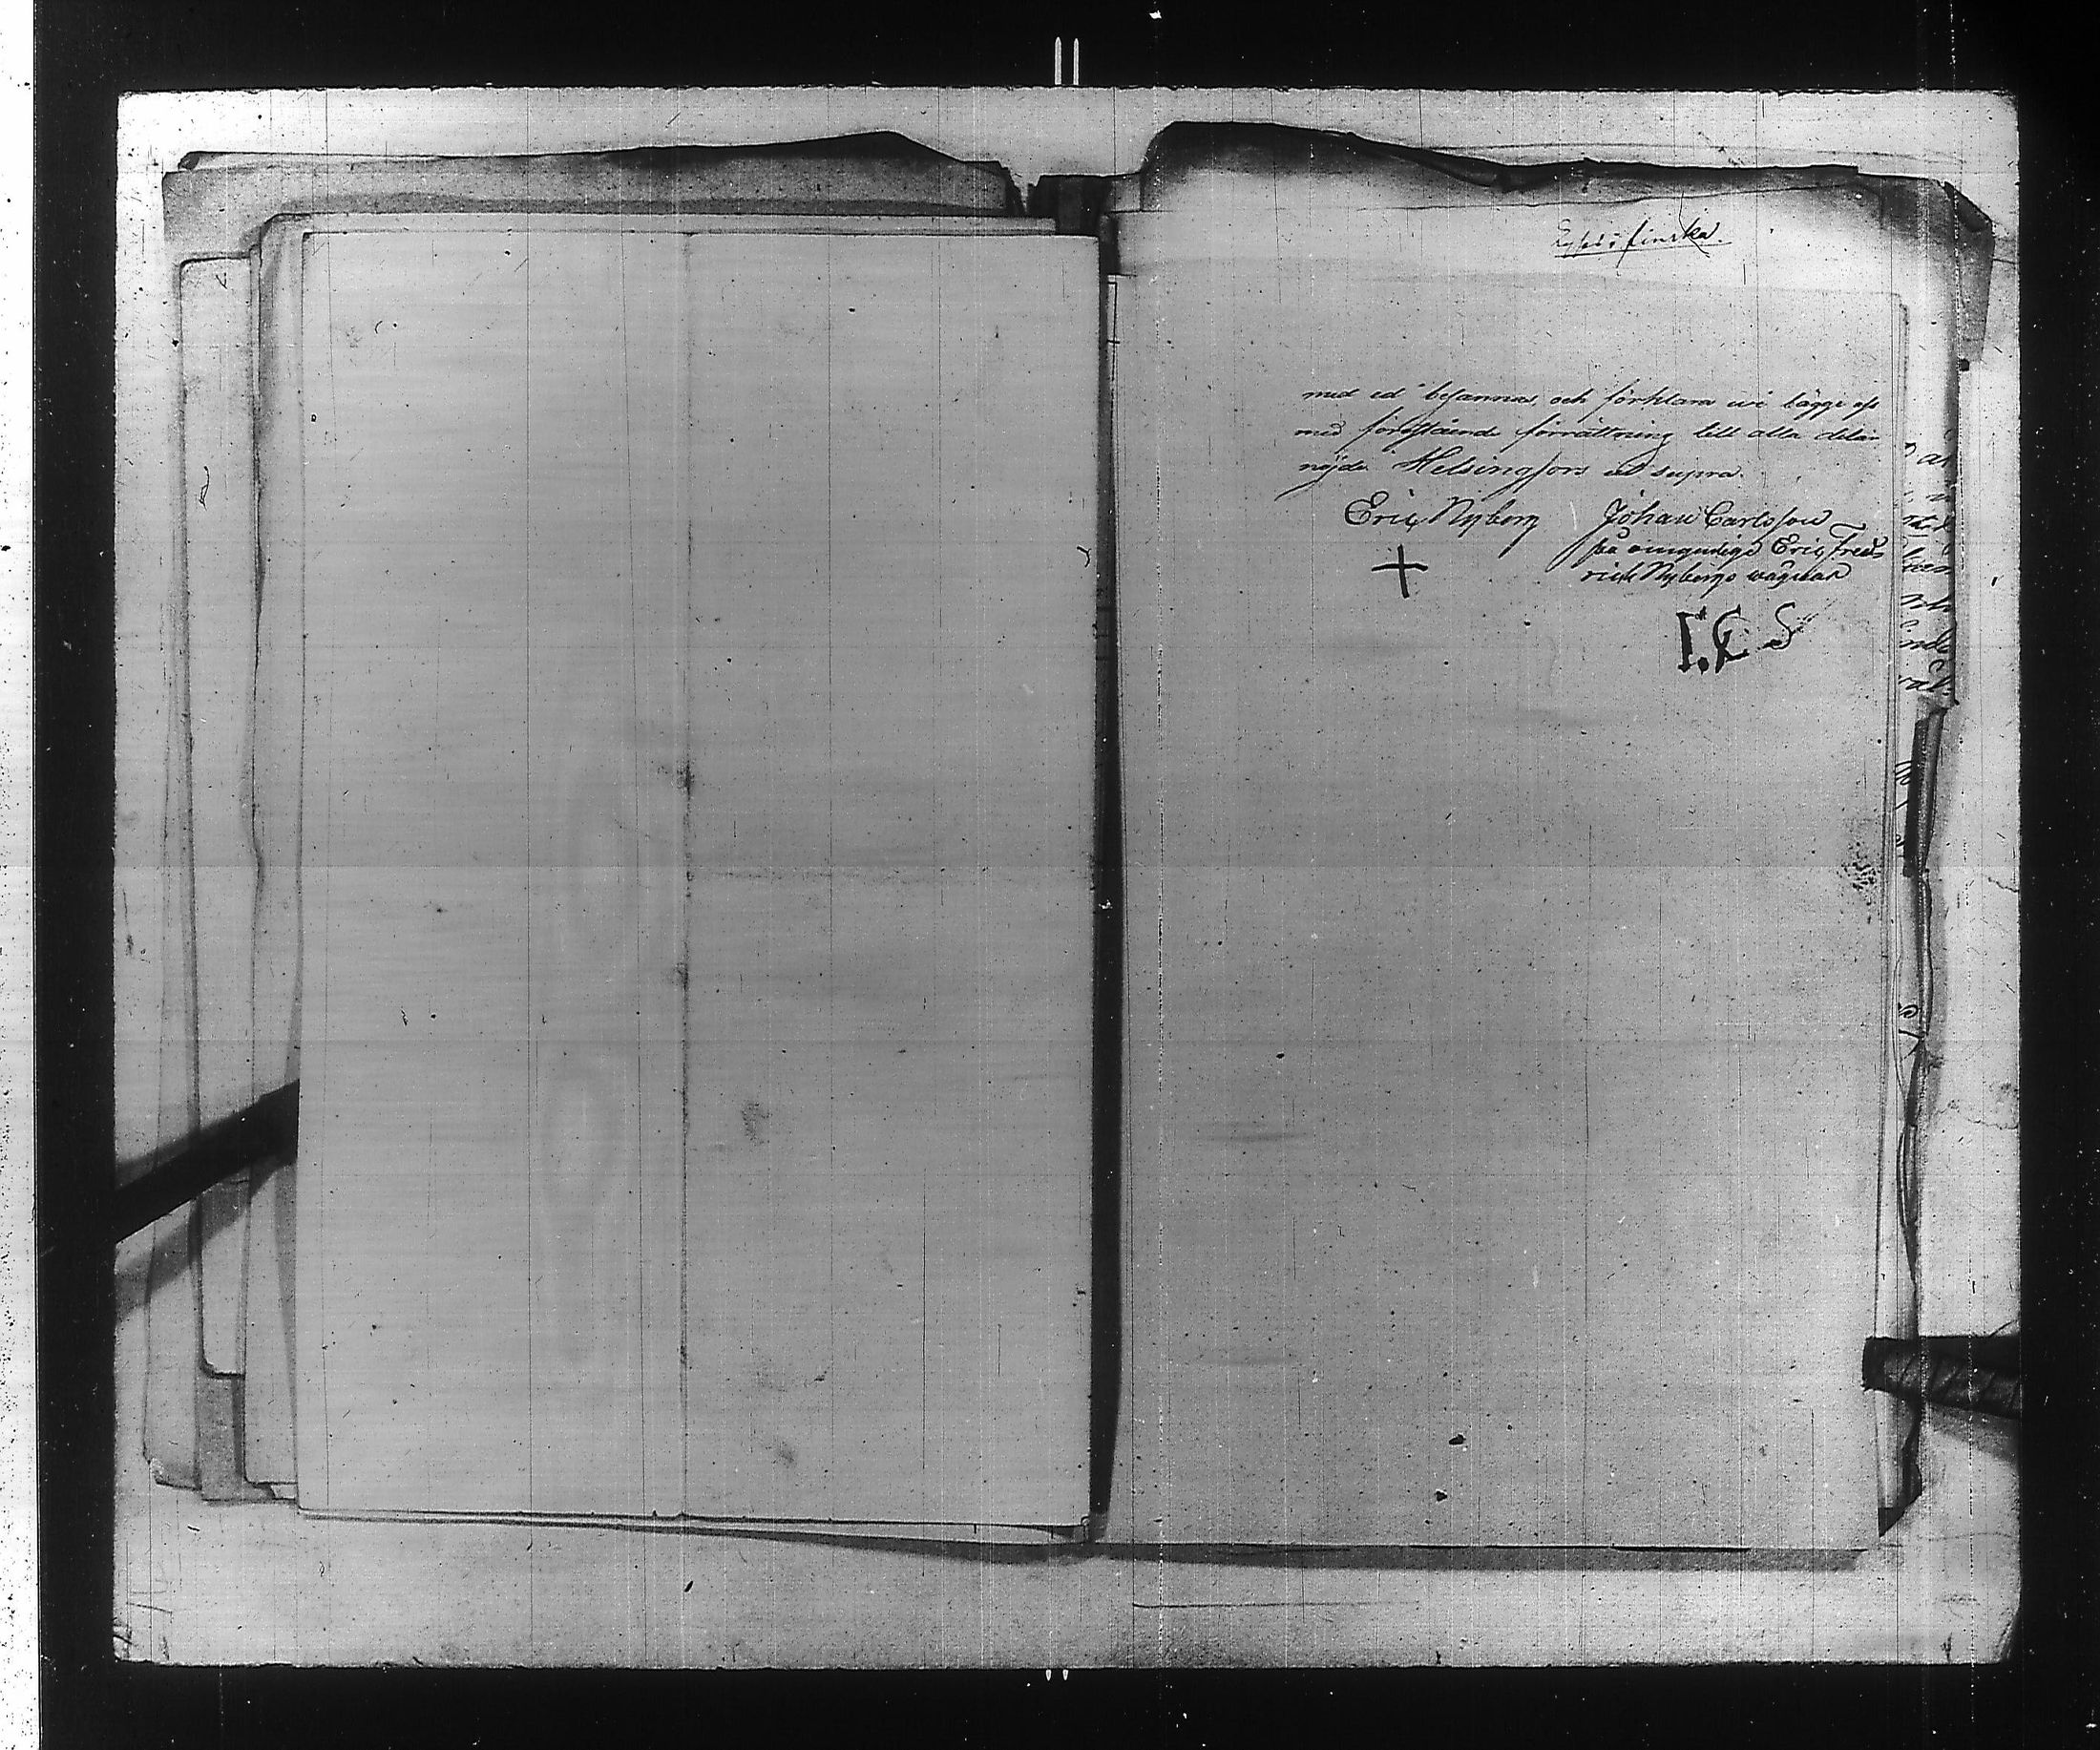 finska.
med ed besannas, och förklara wi lägge oss
med föreståënde förrättning till alla delar
nöjde Helsingfors ut supra.
Eric Nyberg Johan Carlsson
på omyndige Eric Fred-
rick Nybergs wägnar
I.C S